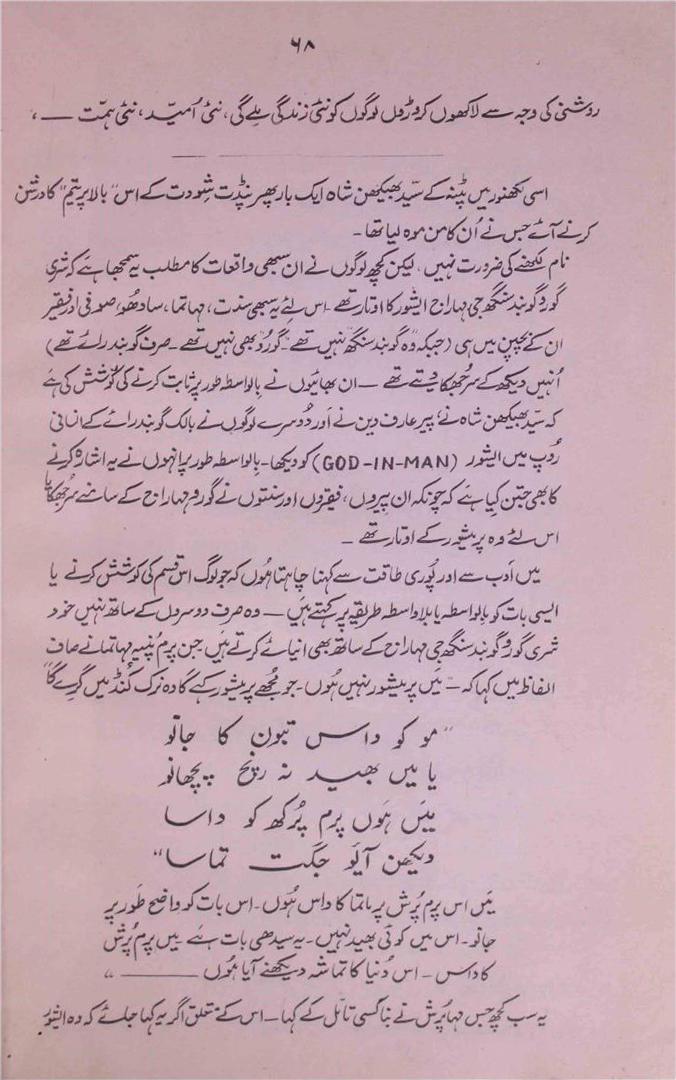 ۶۸
روشنی کی وجہ سے لاکھوں کروڑوں لوگوں کو نئی زندگی ملے گی، نئی اُمیّد، نئی ہمّت ــــ،
اسی لکھنور میں پٹنہ کے سیّد بھیکھن شاہ ایک بار پھر پنڈت شِودت کے اس "بالا پریتم" کا درشن
کرنے آئے جس نے اُن کا من موہ لیا تھا۔
نام لکھنے کی ضرورت نہیں، لیکن کچھ لوگوں نے ان سبھی واقعات کا مطلب یہ سمجھا ہے کہ شری
گورو گوبند سنگھ جی مہاراج ایشور کا اوتار تھے۔ اس لئے یہ سبھی سنت، مہاتما، سادھو، صوفی اور فقیر
ان کے بچپن میں ہی (جبکہ وہ گوبند سنگھ نہیں تھے۔ گورُو بھی نہیں تھے۔ صرف گوبند رائے تھے)
اُنہیں دیکھ کے سر جُھکا دیتے تھے ــ ان بھائیوں نے بالواسطہ طور پر ثابت کرنے کی کوشش کی ہے
کہ سیّد بھیکھن شاہ نے، پیر عارف دین نے اور دُوسرے لوگوں نے بالک گوبند رائے کے انسانی
رُوپ میں ایشور (GOD-IN-MAN) کو دیکھا۔ بالواسطہ طور پر انہوں نے یہ اشارہ کرنے
کا بھی جتن کیا ہے کہ چونکہ ان پیروں، فقیروں اور سنتوں نے گورو مہاراج کے سامنے سر جھکایا
اس لئے وہ پرمیشور کے اوتار تھے ۔
میں اَدب سے اور پُوری طاقت سے کہنا چاہتا ہُوں کہ جو لوگ اس قسم کی کوشش کرنے یا
ایسی بات کو بالواسطہ یا بلاواسطہ طریقہ پر کہتے ہیں ــ وہ صرف دوسروں کے ساتھ نہیں خود
شری گورو گوبند سنگھ جی مہاراج کے ساتھ بھی انیائے کرتے ہیں۔ جن پرم پُنیہ مہاتما نے صاف
الفاظ میں کہا کہ ــ "میں پرمیشور نہیں ہُوں۔ جو مُجھے پرمیشور کہے گا وہ نرک کُنڈ میں گرے گا"
"مو کو داس تبون کا جانو
یا میں بھید نہ رنچ پچھانو
میَں ہَوں پرم پُرکھ کو داسا
دیکھن آیَو جگت تماسا"
میَں اس پرم پُرش پرماتما کا داس ہُوں۔ اس بات کو واضح طَور پر
جانو۔ اس میں کوئی بھید نہیں۔ یہ سیدھی بات ہے ۔ میں پرم پُرش
کا داس ۔ اس دُنیا کا تماشہ دیکھنے آیا ہُوں ــــــــ"
یہ سب کچھ جس مہاپُرش نے بنا کسی تامّل کے کہا۔ اس کے متعلق اگر یہ کہا جائے کہ وہ ایشور